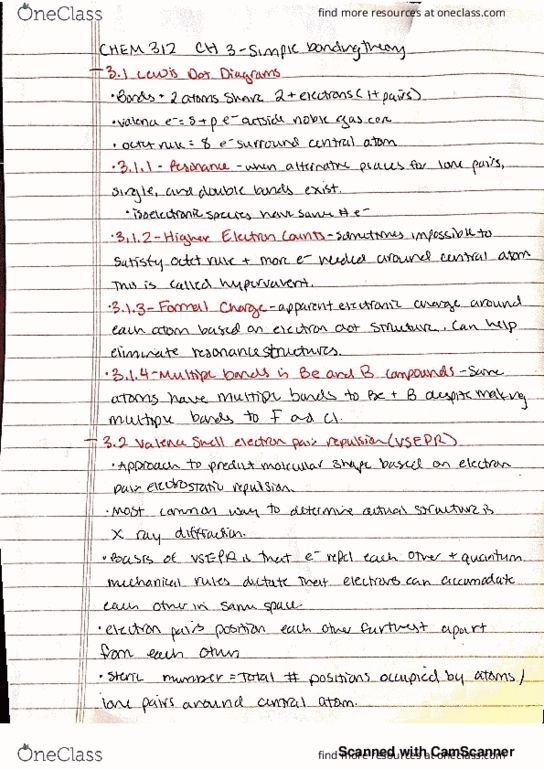 OneClass
find more resources at oneclass.com
CHEM 312 CH 3-Simple bonding theory
3.1 Lewis Dot Diagrams
• Bonds = 2 atoms share 2+ electrons (1+ pairs)
• valence e⁻ = s+p e⁻ outside noble gas core
• octet rule = 8 e⁻ surround central atom
• 3.1.1 - Resonance - when alternative places for lone pairs,
single, and double bonds exist.
• isoelectronic species have same # e⁻
• 3.1.2 - Higher Electron Counts - sometimes impossible to
satisfy octet rule + more e⁻ needed around central atom
This is called hypervalent.
• 3.1.3 - Formal Charge - apparent electronic charge around
each atom based on electron dot structure. Can help
eliminate resonance structures.
• 3.1.4 - Multiple bonds in Be and B compounds - Some
atoms have multiple bonds to Be + B despite making
multiple bonds to F and Cl.
3.2 Valence Shell electron pair repulsion (VSEPR)
• Approach to predict molecular shape based on electron
pair electrostatic repulsion.
• Most common way to determine actual structure is
X ray diffraction.
• Basis of VSEPR is that e⁻ repel each other + quantum
mechanical rules dictate that electrons can accomodate
each other in same space.
• electron pairs position each other furthest apart
from each other
• Steric number = Total # positions occupied by atoms /
lone pairs around central atom.
OneClass
find more resources at oneclass.com
Scanned with CamScanner